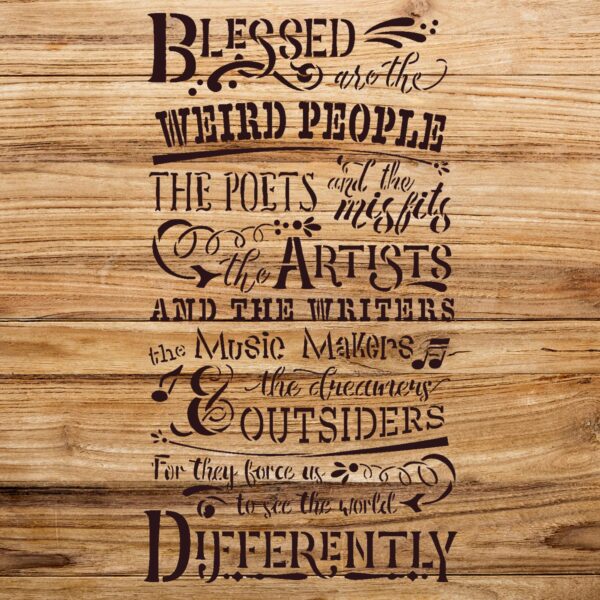 BLESSED
are the
WEIRD PEOPLE
THE POETS and the misfits
the ARTISTS
AND THE WRITERS
the Music Makers
& the dreamers
OUTSIDERS
For they force us
to see the world
DIFFERENTLY